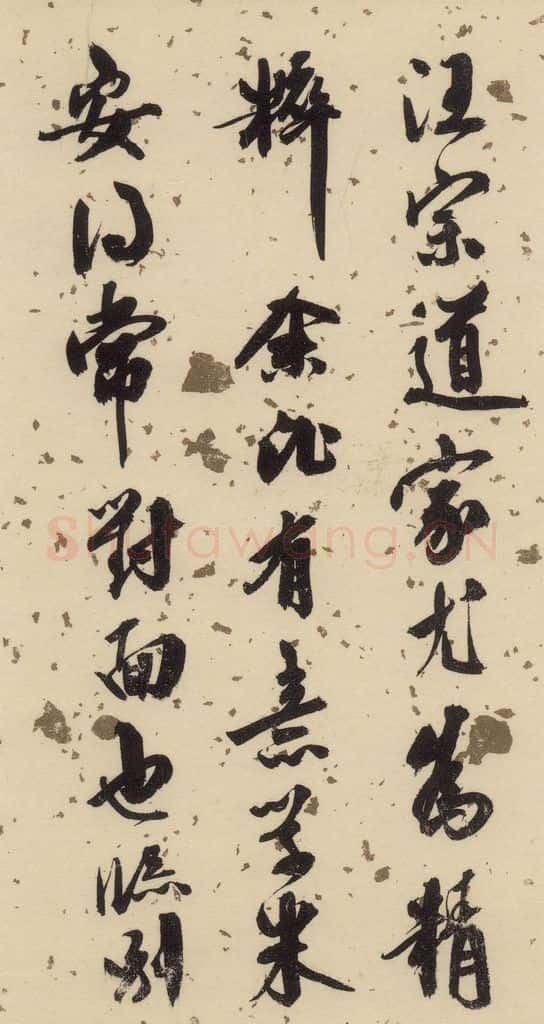 汪宗道家尤為精
粹余比有意學米
安得常對面也臨別
Shufawang.CN